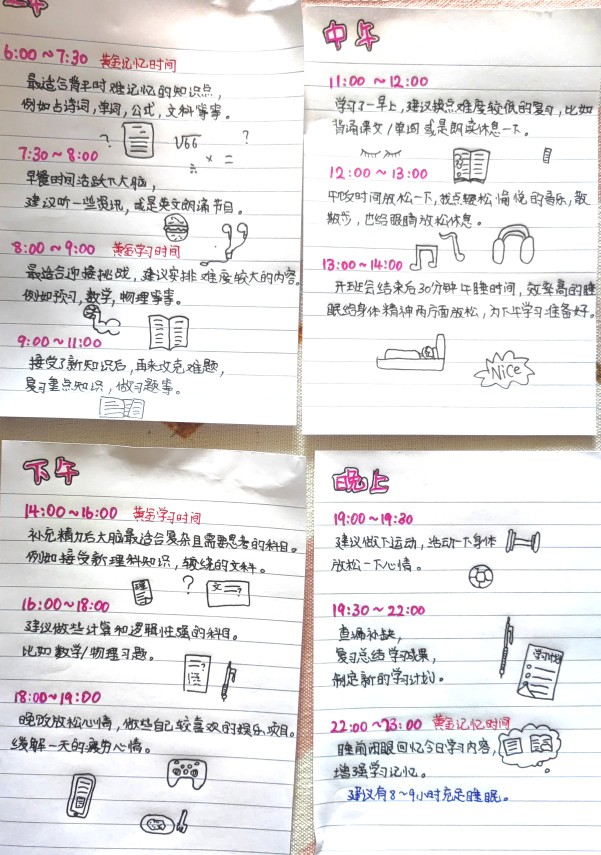 6:00~7:30 黄金记忆时间
最适合背平时难记忆的知识点,
例如古诗词,单词,公式,文科等等。
? √66 ?
× =
÷
7:30~8:00
早餐时间活跃下大脑,
建议听一些资讯,或是英文朗诵节目。
8:00~9:00 黄金学习时间
最适合迎接挑战,建议安排难度较大的内容。
例如预习,数学,物理等等。
9:00~11:00
接受了新知识后,再来攻克难题,
复习重点知识,做习题等。
中午
11:00~12:00
学习了一早上,建议换点难度较低的复习,比如
背诵课文/单词或是朗读休息一下。
12:00~13:00
午饭时间放松一下,找点轻松愉悦的音乐,散
散步,也给眼睛放松休息。
13:00~14:00
开班会结束后30分钟午睡时间,效率高的睡
眠给身体精神两方面放松,为下午学习准备好。
Nice
下午
14:00~16:00 黄金学习时间
补充精力后大脑最适合复杂且需要思考的科目。
例如接受新理科知识,较绕的文科。
理 ? 文…?
16:00~18:00
建议做些计算和逻辑性强的科目。
比如数学/物理习题。
18:00~19:00
晚饭放松心情,做些自己较喜欢的娱乐项目。
缓解一天的疲劳心情。
晚上
19:00~19:30
建议做下运动,活动一下身体
放松一下心情。
19:30~22:00
查漏补缺,
复习总结学习成果,
制定新的学习计划。
学习计划
22:00~23:00 黄金记忆时间
睡前闭眼回忆今日学习内容,
增强学习记忆。
建议有8~9小时充足睡眠。